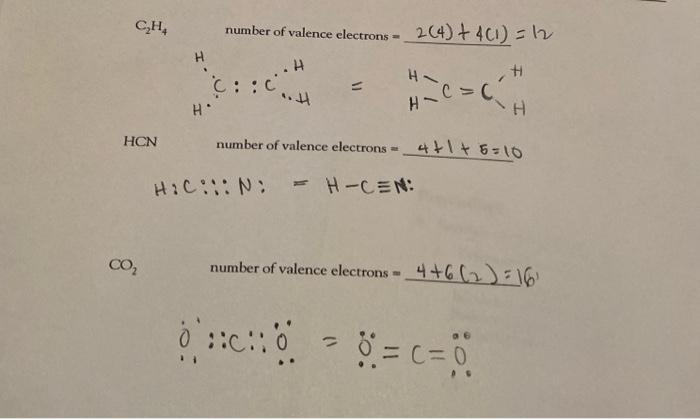 C₂H₄ number of valence electrons = 2(4) + 4(1) = 12
H H H H
C : : C = C = C
H H H H
HCN number of valence electrons = 4 + 1 + 5 = 10
H : C ::: N : = H - C ≡ N:
CO₂ number of valence electrons = 4 + 6(2) = 16
O :: C :: O = O = C = O